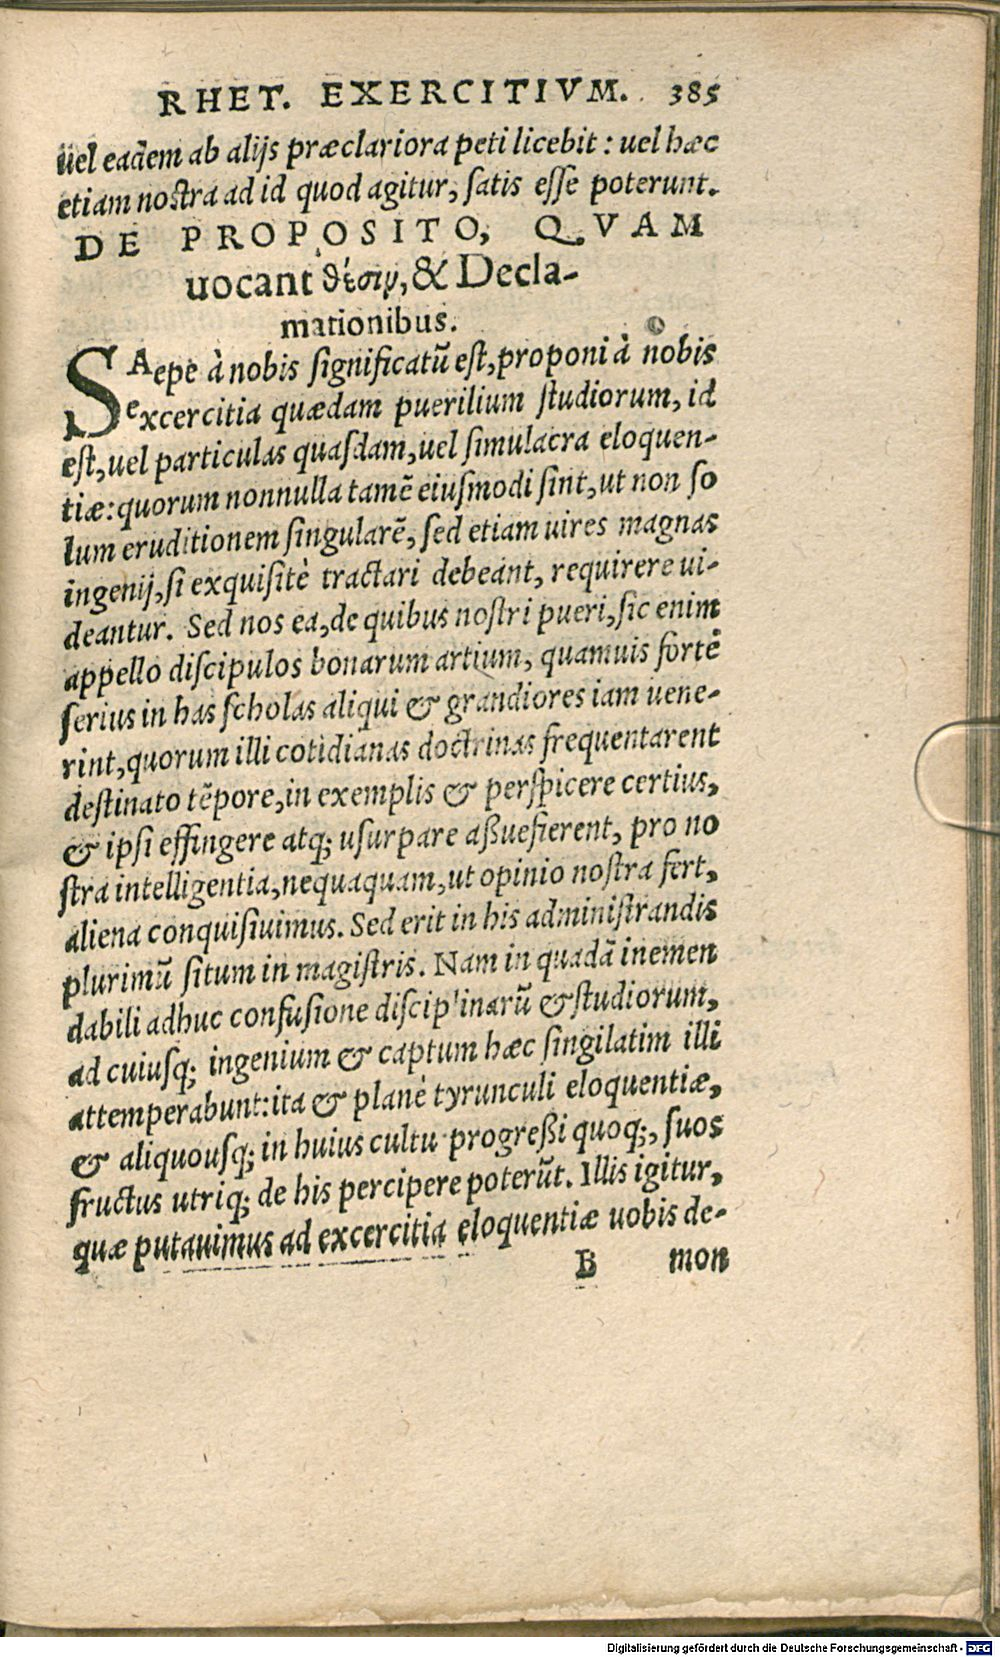 RHET. EXERCITIVM. 385
uel eadem ab alijs præclariora peti licebit : uel hæc
etiam nostra ad id quod agitur, ſatis eſſe poterunt.
DE PROPOSITO, QVAM
uocant θέσιμ, & Decla-
mationibus.
SAepe à nobis ſignificatũ eſt, proponi à nobis
excercitia quædam puerilium ſtudiorum, id
eſt, uel particulas quaſdam, uel ſimulacra eloquen-
tiæ: quorum nonnulla tamẽ eiuſmodi ſint, ut non ſo
lum eruditionem ſingularẽ, ſed etiam uires magnas
ingenij, ſi exquiſitè tractari debeant, requirere ui-
deantur. Sed nos ea, de quibus noſtri pueri, ſic enim
appello diſcipulos bonarum artium, quamuis fortè
ſerius in has ſcholas aliqui & grandiores iam uene-
rint, quorum illi cotidianas doctrinas frequentarent
deſtinato tẽpore, in exemplis & perſpicere certius,
& ipſi effingere atq; uſurpare aßuefierent, pro no
ſtra intelligentia, nequaquam, ut opinio noſtra fert,
aliena conquiſiuimus. Sed erit in his adminiſtrandis
plurimũ ſitum in magiſtris. Nam in quadã inemen
dabili adhuc confuſione diſcip'inarũ & ſtudiorum,
ad cuiuſq; ingenium & captum hæc ſingilatim illi
attemperabunt: ita & planè tyrunculi eloquentiæ,
& aliquouſq; in huius cultu progreßi quoq;, ſuos
fructus utriq; de his percipere poterũt. Illis igitur,
quæ putauimus ad excercitia eloquentiæ uobis de-
B mon
Digitalisierung gefördert durch die Deutsche Forschungsgemeinschaft - DFG